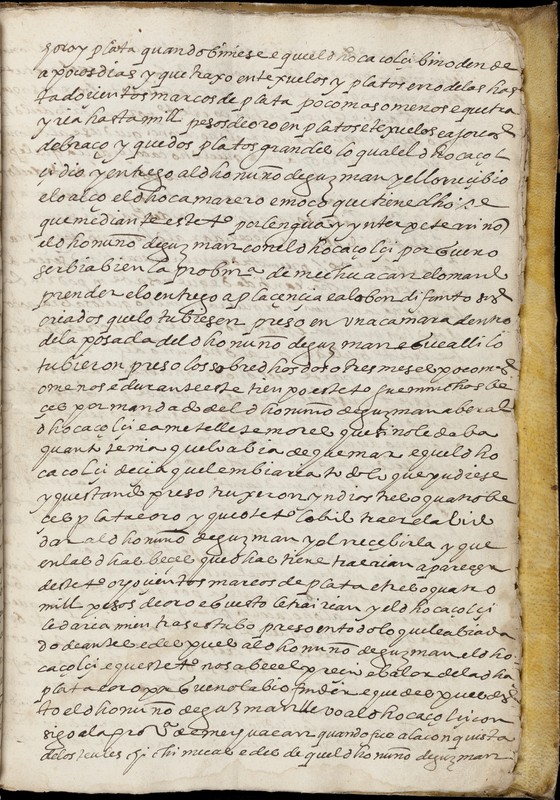 y oro y plata quando biniese e que el dho caçolçi bino den de
a pocos dias y que traxo en texuelos y platos e rodelas has
ta dozientos marcos de plata poco mas o menos e que tra
yria hasta mill pesos de oro en platos e texuelos e ajorcas
de braço y que dos platos grandes lo qual el dho caçol
çi dio y entrego al dho nuño de guzman y el lo rreçibio
e lo alço el dho camarero e moço que tiene dho
que mediante este tº por lengua y ynterpete
el dho nuño de guzman con el dho caçolçi por que no
serbia bien la probinª de mechuacan e lo mando
prender e lo entrego a plaçençia e alobon difunto sus
criados que lo tubiesen preso en una camara dentro
de la posada del dho nuño de guzman e que alli lo
tubieron preso los sobredhos dos o tres meses poco mas
o menos e durante este tienpo este tº fue muchas be
çes por mandado del dho nuño de guzman a ber al
dho caçolçi e a metelle temores que si no le daba
quanto tenia que lo abia de quemar e quel dho
caçolçi deçia quel embiaria todo lo que pudiese
y questando preso truxeron yndios tres o quatro be
çes plata e oro y queste tº lo bido traer e la bido
dar al dho nuño de guzman y el reçebirla y que
en las dhas bezes que dhas tiene traerian a pareçer
deste tº ochoçientos marcos de plata e tres o quatro
mill pesos de oro e questo le trairian y el dho caçolçi
le daria mientras estubo preso en todo lo que le abia da
do de antes e despues al dho nuño de guzman el dho
caçolçi e queste tº no sabe el preçio e balor de la dha
plata e oro por que no la bio fundir e que despues des
to el dho nuño de guzman llevo al dho caçolçi con
sigo a la proª de mechuacan quando fue a la conquista
de los teules chichimecas e desde quel dho nuño de guzman